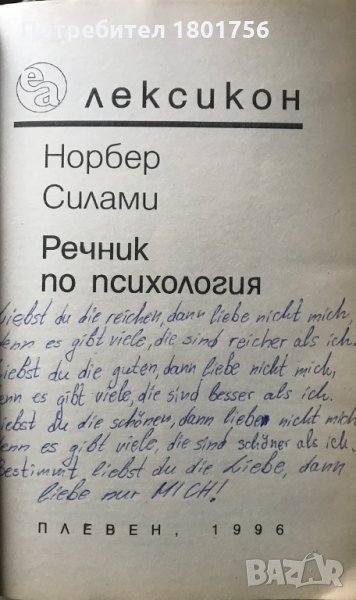 Потребител 1801756
ea
лексикон
Норбер
Силами
Речник
по психология
Liebst du die reichen, dann liebe nicht mich,
denn es gibt viele, die sind reicher als ich.
Liebst du die guten, dann liebe nicht mich,
denn es gibt viele, die sind besser als ich.
Liebst du die schönen, dann lieben nicht mich
denn es gibt viele, die sind schöner als ich.
Bestimmt liebst du die Liebe, dann
liebe nur MICH!
ПЛЕВЕН, 1996
BAZAR